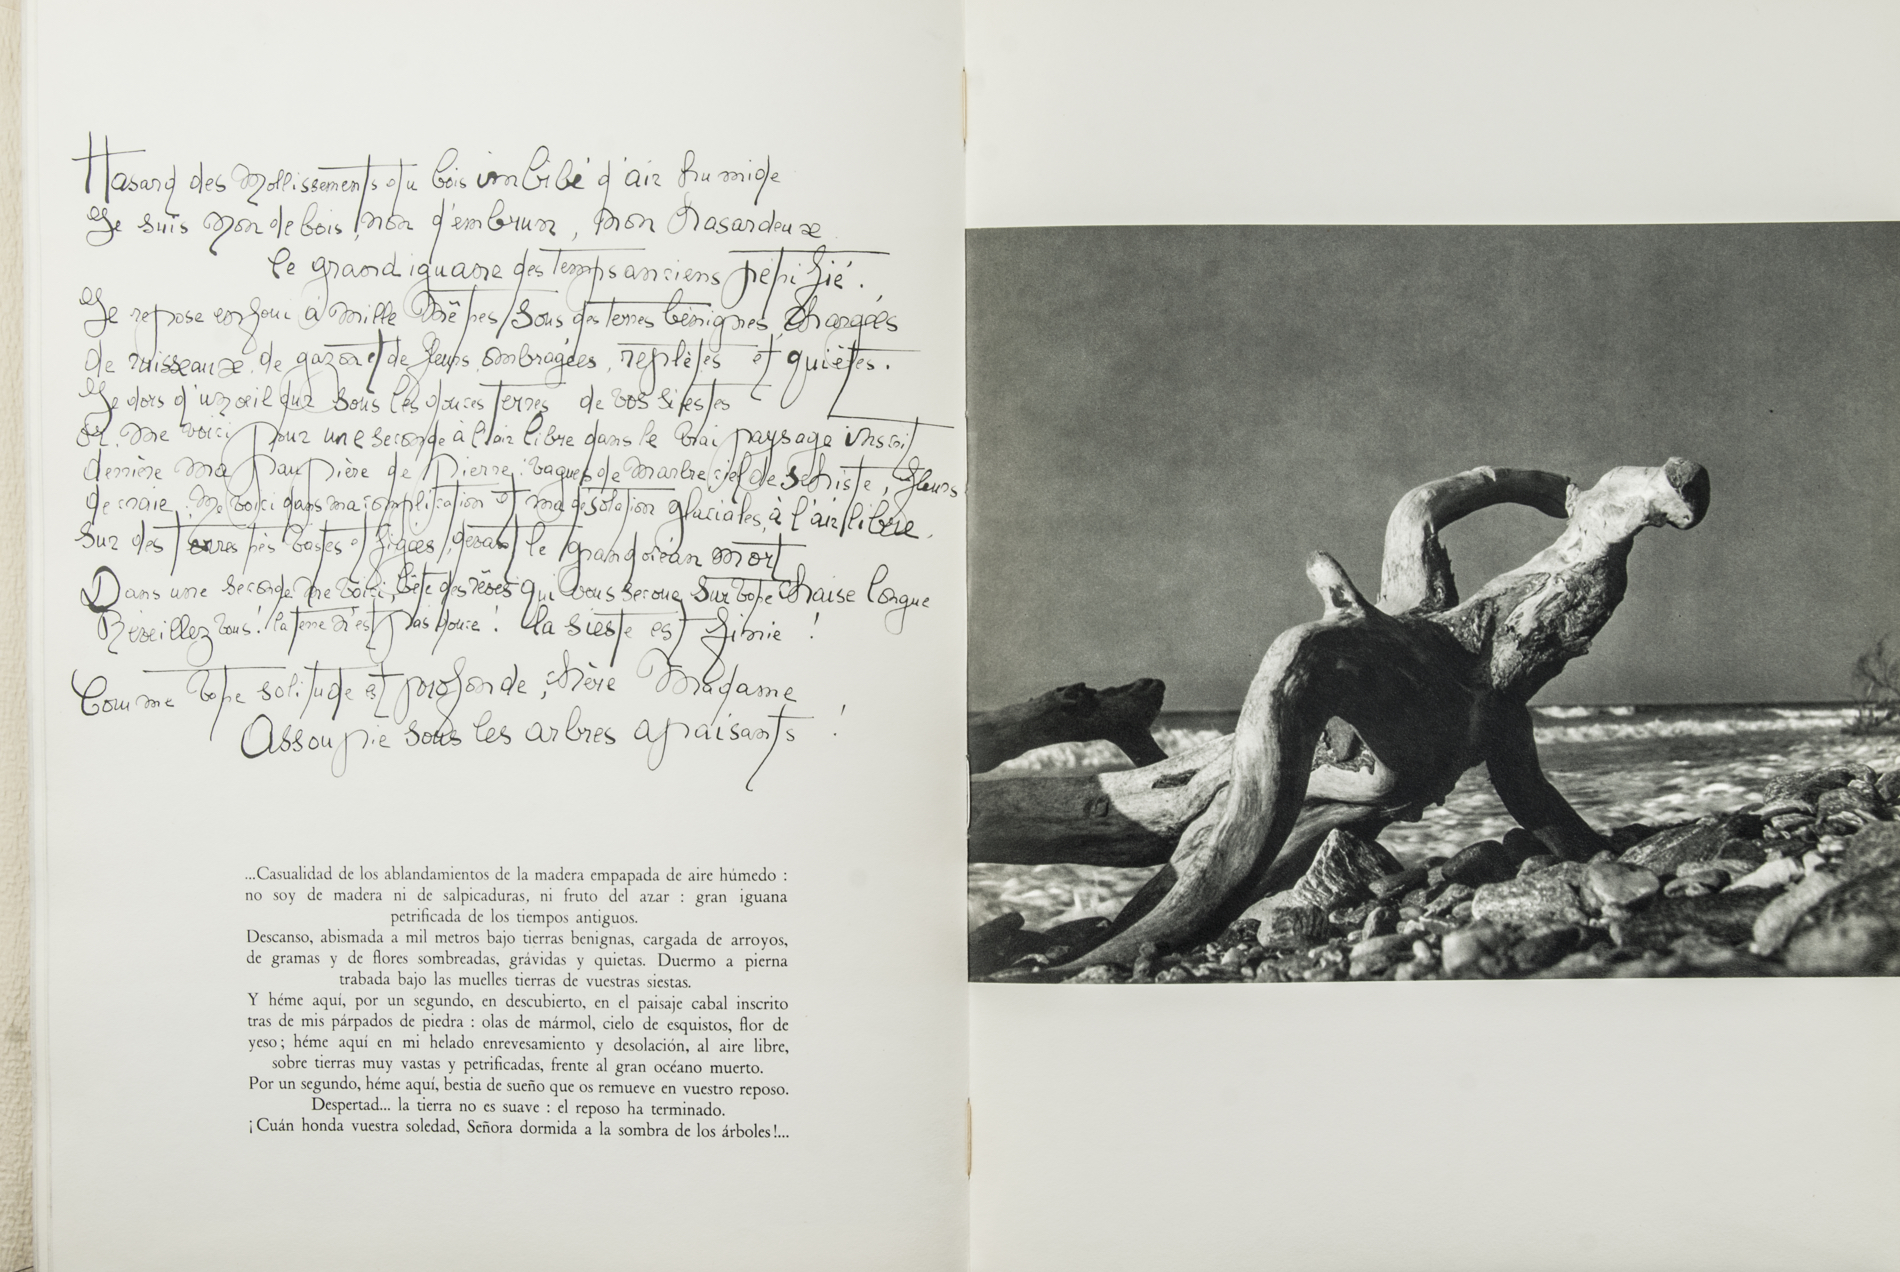 Hasard des mollissements du bois imbibé d'air humide
Je suis non de bois, non d'embrun, non hasardeux
le grand iguane des temps anciens pétrifié.
Je repose enfoui à mille mètres sous des terres bénignes, chargées
de ruisseaux, de gazon et de fleurs ombragées, replètes et quiètes.
Je dors d'un œil dur sous les douces terres de vos siestes
or, me voici pour une seconde à l'air libre dans le vrai paysage inscrit
derrière ma paupière de pierre: vagues de marbre, ciel de schiste, fleurs
de craie. Me voici dans ma complication et ma désolation glaciales, à l'air libre,
sur des terres très vastes et figées, devant le grand océan mort
Dans une seconde me voici, bête des rêves qui vous secoue sur votre chaise longue
Réveillez vous! la terre n'est pas douce! la sieste est finie!
Comme votre solitude est profonde, chère Madame
Assoupie sous les arbres apaisants!
...Casualidad de los ablandamientos de la madera empapada de aire húmedo :
no soy de madera ni de salpicaduras, ni fruto del azar : gran iguana
petrificada de los tiempos antiguos.
Descanso, abismada a mil metros bajo tierras benignas, cargada de arroyos,
de gramas y de flores sombreadas, grávidas y quietas. Duermo a pierna
trabada bajo las muelles tierras de vuestras siestas.
Y héme aquí, por un segundo, en descubierto, en el paisaje cabal inscrito
tras de mis párpados de piedra : olas de mármol, cielo de esquistos, flor de
yeso ; héme aquí en mi helado enrevesamiento y desolación, al aire libre,
sobre tierras muy vastas y petrificadas, frente al gran océano muerto.
Por un segundo, héme aquí, bestia de sueño que os remueve en vuestro reposo.
Despertad... la tierra no es suave : el reposo ha terminado.
¡Cuán honda vuestra soledad, Señora dormida a la sombra de los árboles!...